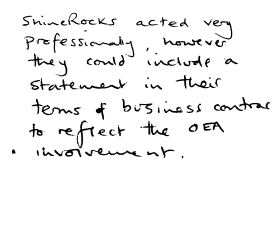 ShineRocks acted very
professionally, however
they could include a
statement in their
terms of business contrac
to reflect the OEA
• involvement.